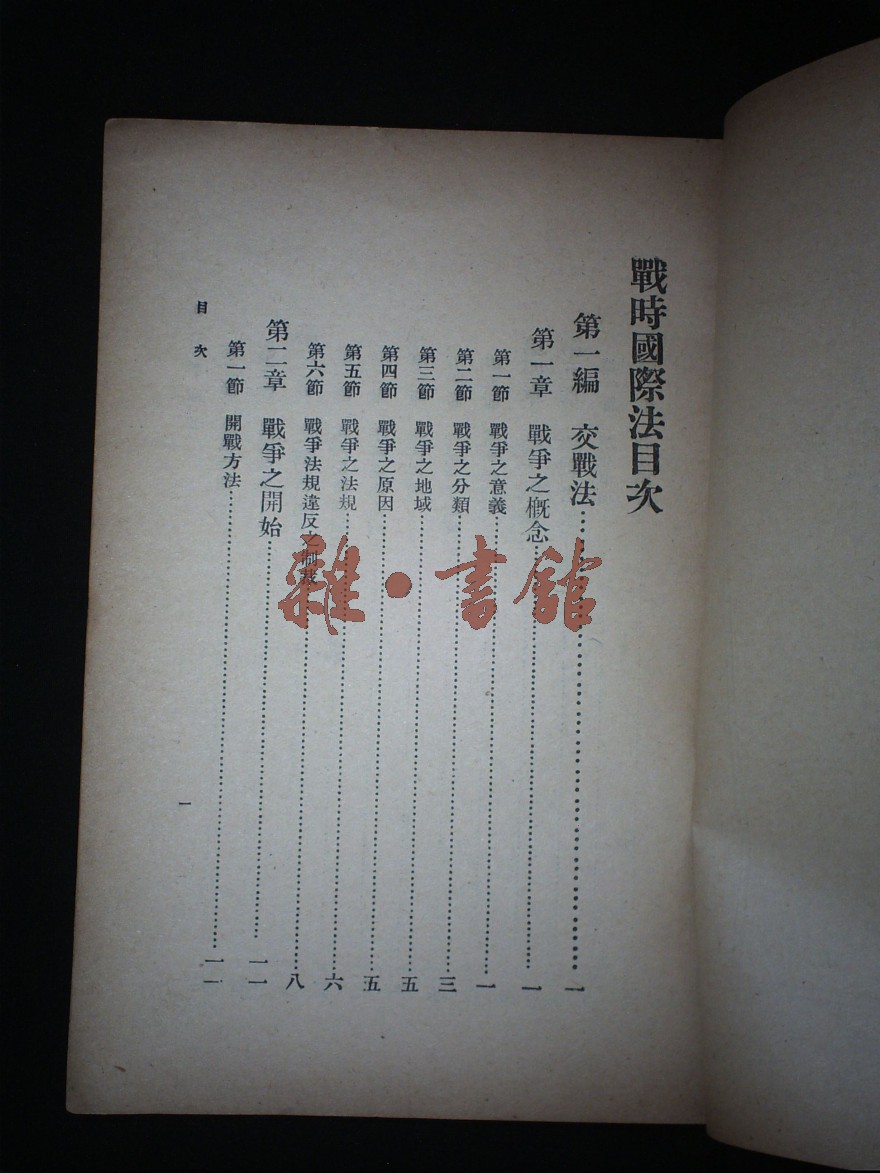 戰時國際法目次
第一編 交戰法……一
第一章 戰爭之概念……一
第一節 戰爭之意義……一
第二節 戰爭之分類……三
第三節 戰爭之地域……五
第四節 戰爭之原因……五
第五節 戰爭之法規……六
第六節 戰爭法規違反之制裁……八
第二章 戰爭之開始……一一
第一節 開戰方法……一一
目次
一
雜·書館